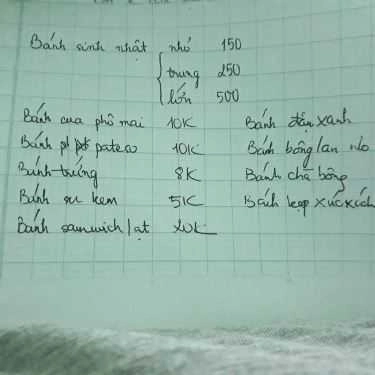 Bánh sinh nhật nhỏ 150
trung 250
lớn 500
Bánh cua phô mai 10K Bánh đậu xanh
Bánh pateo 10K Bánh bông lan nho
Bánh trứng 8K Bánh chà bông
Bánh su kem 5K Bánh kẹp xúc xích
Bánh sanwich lạt 20K